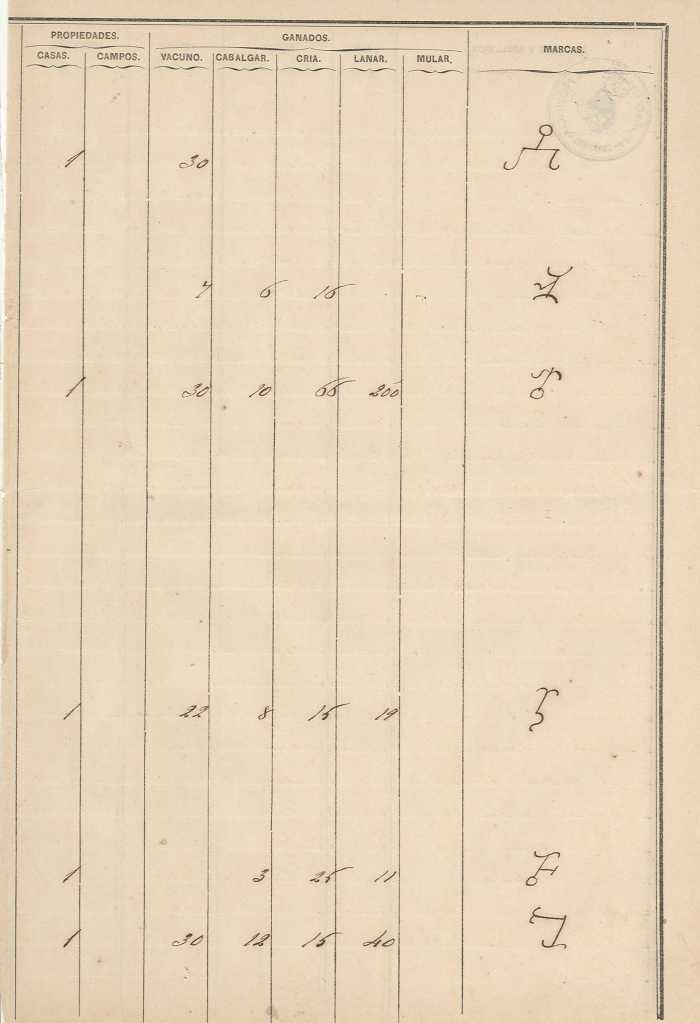 PROPIEDADES. GANADOS. MARCAS.
CASAS. CAMPOS. VACUNO. CABALGAR. CRIA. LANAR. MULAR.
1 30
7 6 16
1 30 10 66 200
1 22 8 15 19
1 3 25 11
1 30 12 15 40